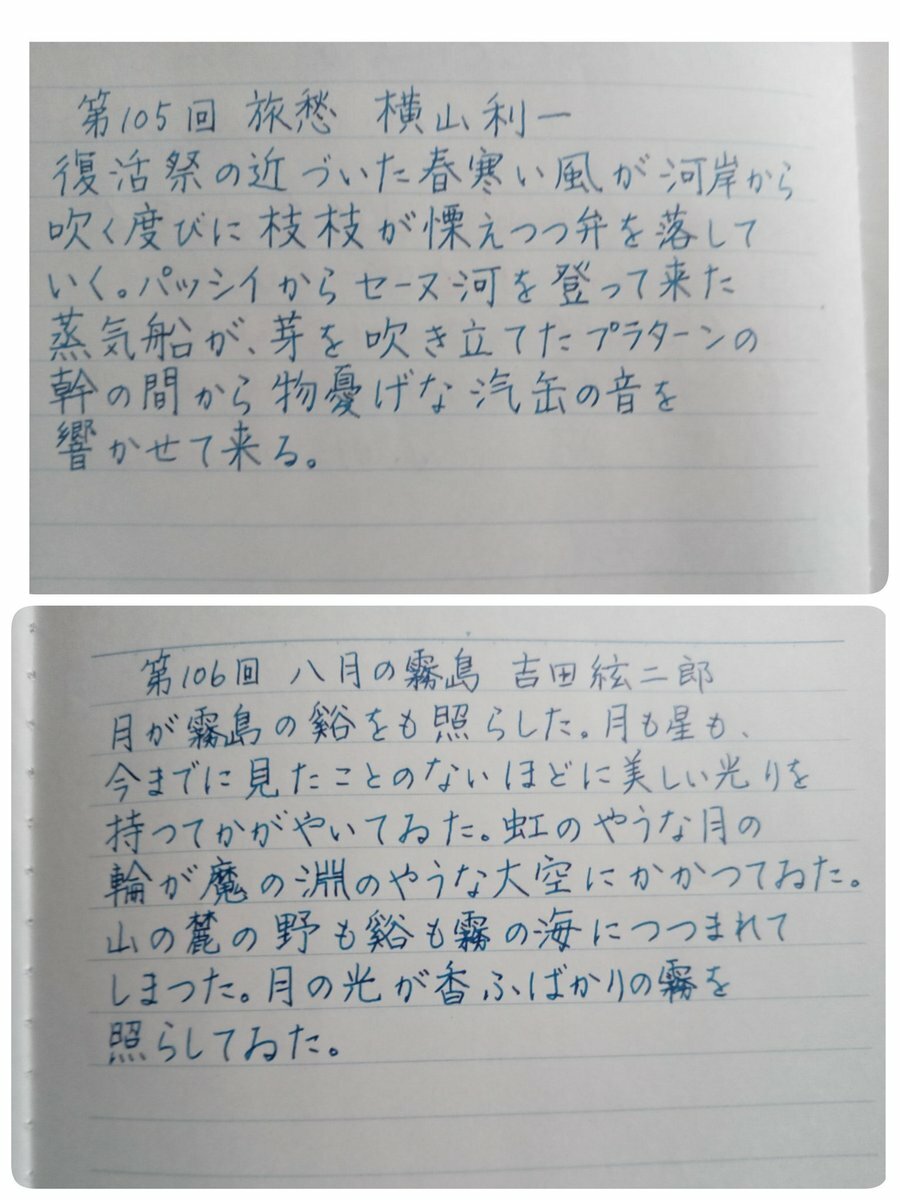 第105回 旅愁 横山利一
復活祭の近づいた春寒い風が河岸から
吹く度びに枝枝が慄えつつ弁を落して
いく。パッシイからセーヌ河を登って来た
蒸気船が、芽を吹き立てたプラターンの
幹の間から物憂げな汽缶の音を
響かせて来る。
第106回 八月の霧島 吉田絃二郎
月が霧島の谿をも照らした。月も星も、
今までに見たことのないほどに美しい光りを
持つてかがやいてゐた。虹のやうな月の
輪が魔の淵のやうな大空にかかつてゐた。
山の麓の野も谿も霧の海につつまれて
しまつた。月の光が香ふばかりの霧を
照らしてゐた。